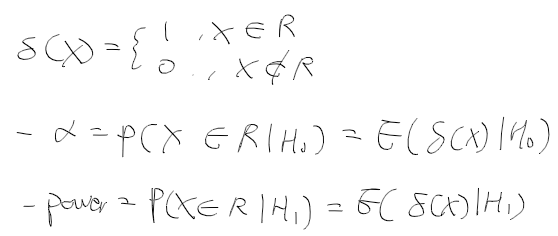 δ(X) = { 1 , X ∈ R
0 , X ∉ R
- α = P(X ∈ R | H₀) = E(δ(X) | H₀)
- power = P(X ∈ R | H₁) = E(δ(X) | H₁)